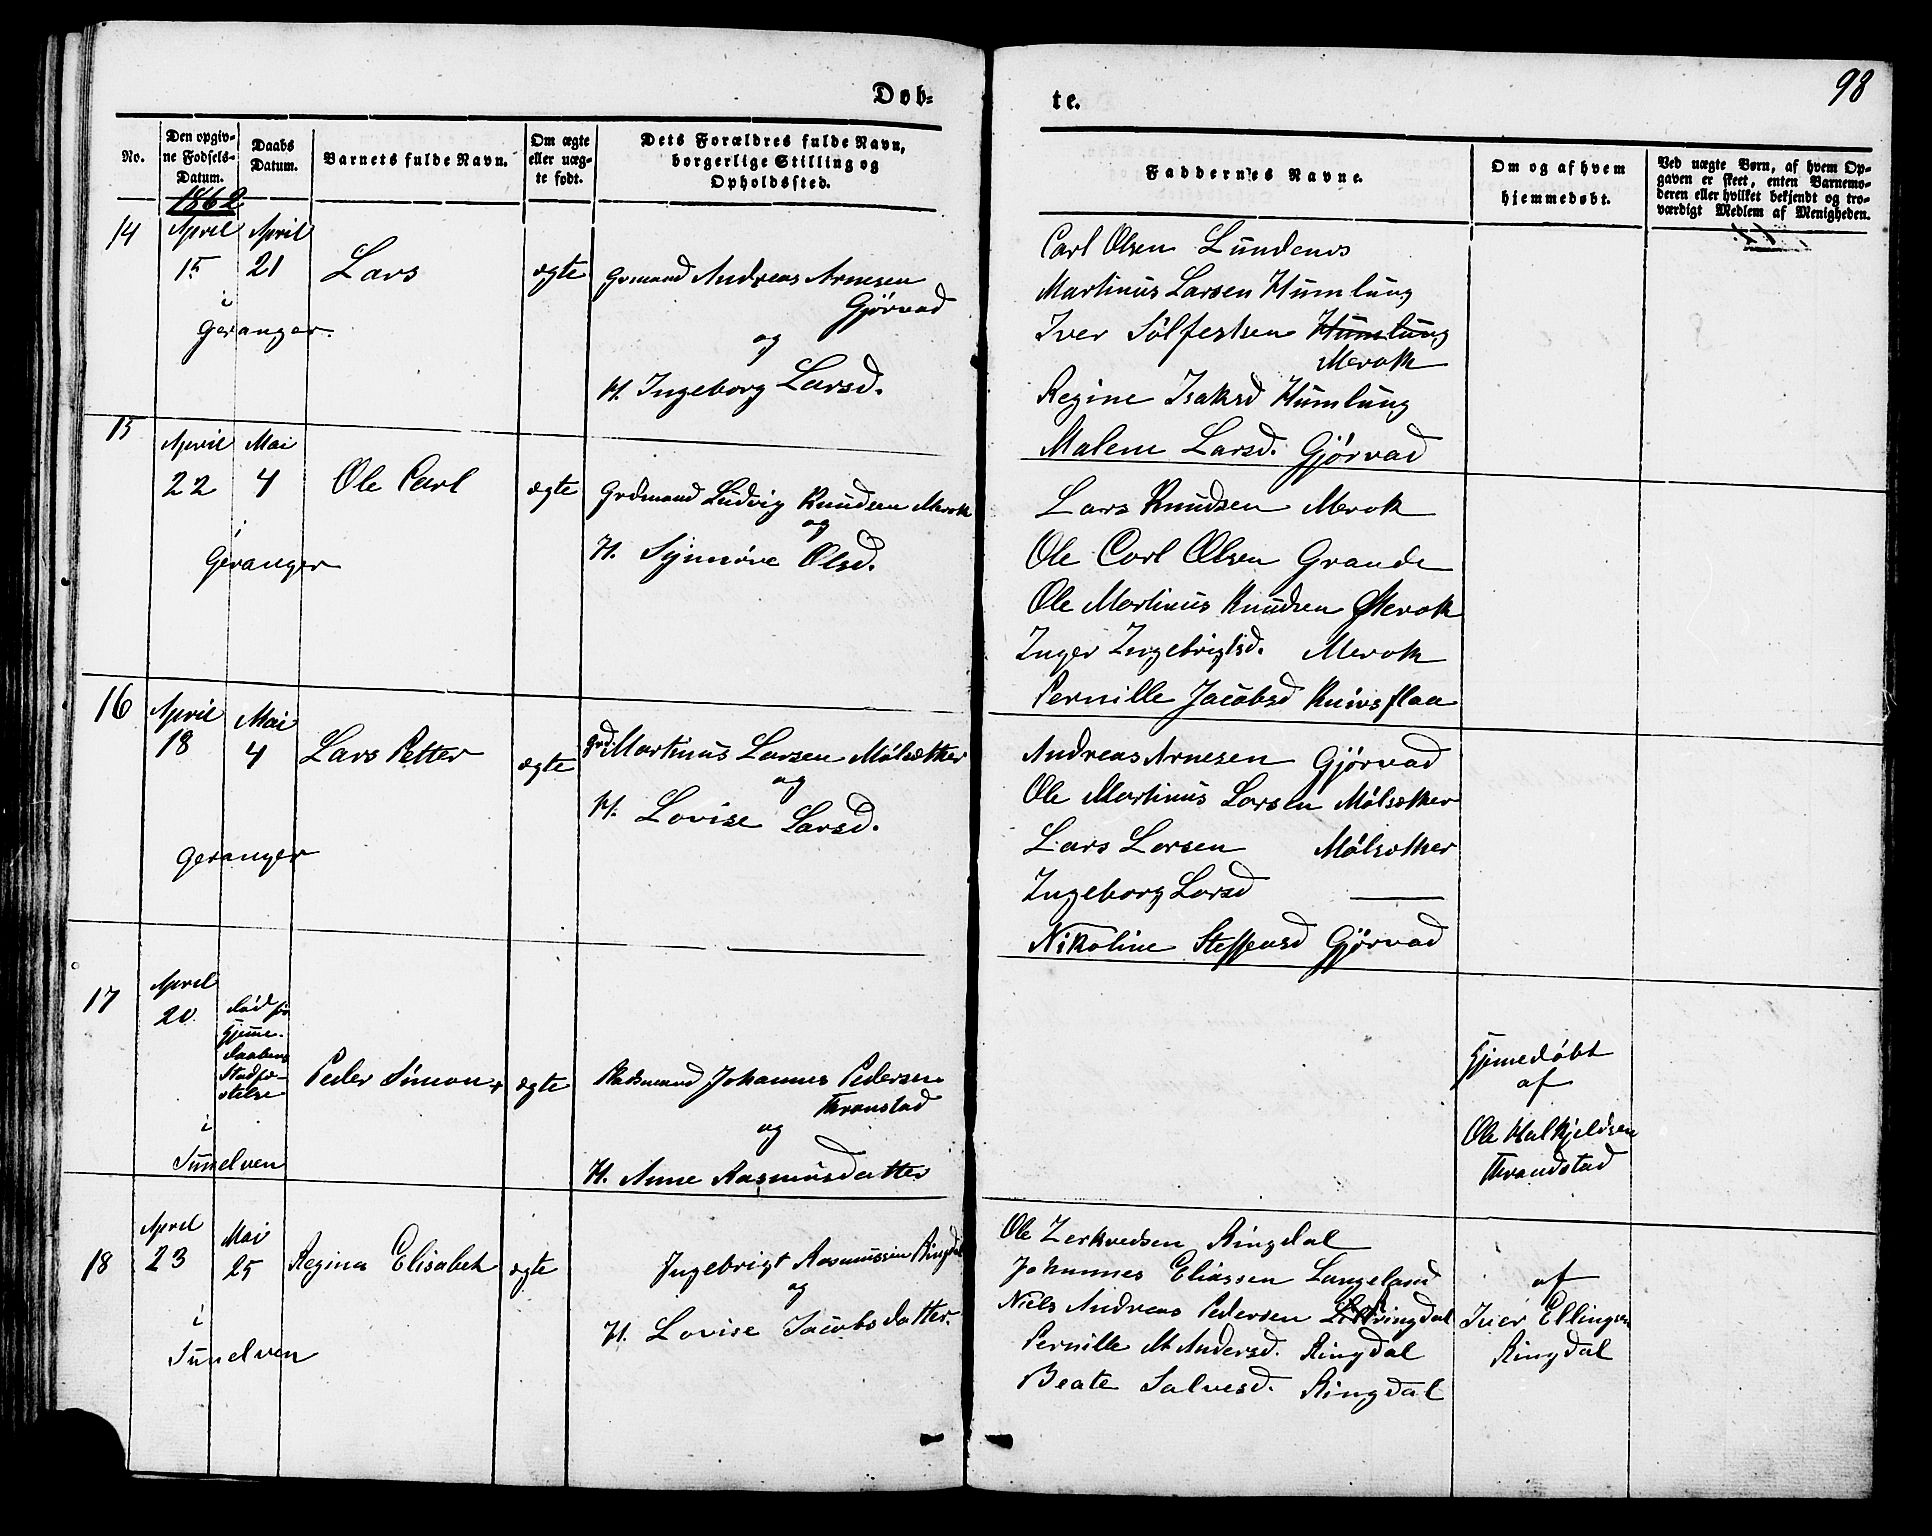 98
Døb-
te.
No.
Den opgiv-
ne Fødsels-
Datum.
Daabs
Datum.
Barnets fulde Navn.
Om ægte
eller uæg-
te født.
Dets Forældres fulde Navn,
borgerlige Stilling og
Opholdssted.
Faddernes Navne.
Om og af hvem
hjemmedøbt.
Ved uægte Børn, af hvem Op-
gaven er skeet, enten Barnemo-
deren eller hvilket bekjendt og tro-
værdigt Medlem af Menigheden.
1862
14
April
15
i
Geranger.
April
21
Lars
ægte
Grmand Andreas Arnesen
Gjørvad
og
H. Ingeborg Larsd.
Carl Olsen Lundenes
Martinus Larsen Humlung
Iver Sølfestsen Humlung
Merok
Regine Isaksd Humlung
Malene Larsd. Gjørvad
15
April
22
i
Geranger
Mai
4
Ole Carl
ægte
Grdmand Ludvig Knudsen Merok
og
H. Synnøve Olsd.
Lars Knudsen Merok
Ole Carl Olsen Grande
Ole Martinus Knudsen Merok
Inger Ingebrigtsd. Merok
Pernille Jacobsd Knivsflaa
16
April
18
Geranger
Mai
4
Lars Petter
ægte
Grd. Martinus Larsen Mølsæther
og
H. Lovise Larsd.
Andreas Arnesen Gjørvad
Ole Martinus Larsen Mølsæther
Lars Larsen Mølsæther
Ingeborg Larsd —
Nikoline Steffensd Gjørvad
17
April
20
i
Sunelven
død før
Hjemme-
daabens
Stadfæ-
stelse
Peder Simon
ægte
Pladsmand Johannes Pedersen
Thronstad
og
H. Anne Rasmusdatter
Hjemedøbt
af
Ole Halkjeldsen
Thrandstad
18
April
23
i
Sunelven
Mai
25
Regina Elisabet
ægte
Ingebrigt Rasmussen Ringdal
og
H. Lovise Jacobsdatter.
Ole Zerkvedsen Ringdal
Johannes Eliassen Langeland
Niels Andreas Pedersen Lilleringdal
Pernille M. Andersd. Ringdal
Beate Salvesd. Ringdal
af
Iver Ellingsen
Ringdal